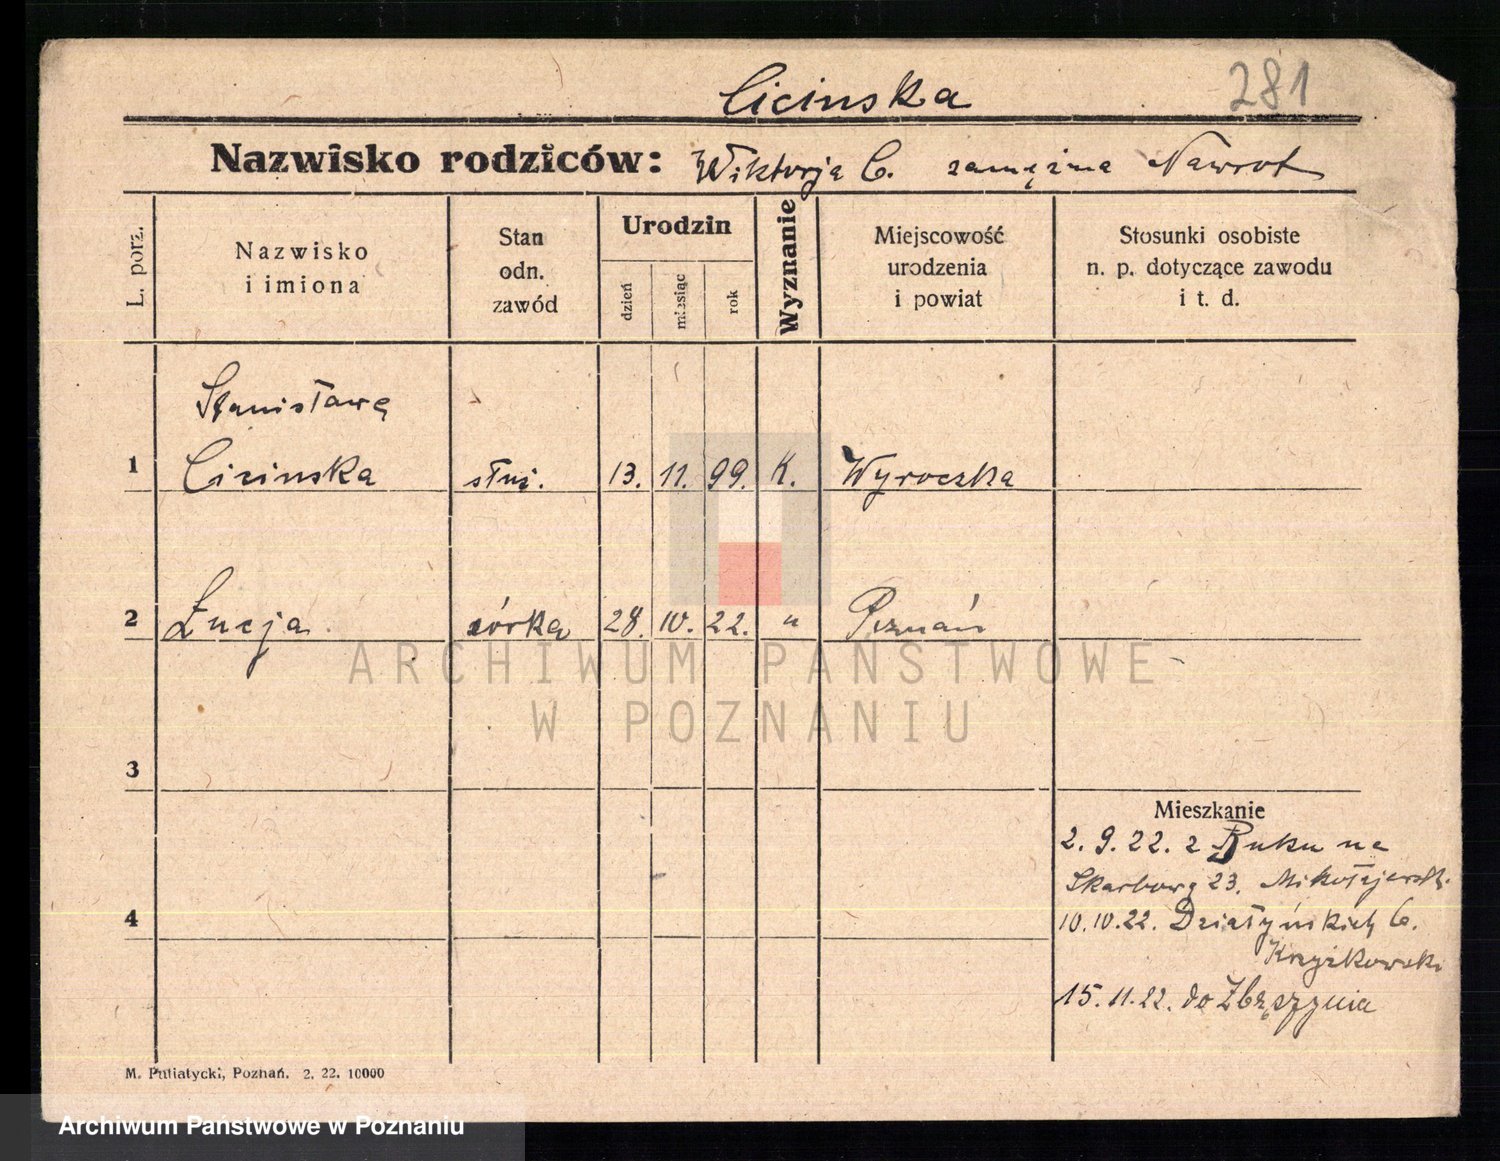 Cicinska
281
Nazwisko rodziców: Wiktorja C. zamężna Nawrot
L. porz.
Nazwisko
i imiona
Stan
odn.
zawód
Urodzin
dzień
miesiąc
rok
Wyznanie
Miejscowość
urodzenia
i powiat
Stosunki osobiste
n. p. dotyczące zawodu
i t. d.
Stanisława
1 Cicinska służ. 13. 11. 99. K. Wyroczka
2 Łucja córka 28. 10. 22. " Poznań
3
4
Mieszkanie
2. 9. 22. z Buku na
Skarbową 23.
10. 10. 22. Działyńskich 6.
Krzyżkowski
15. 11. 22. do Zbąszynia
M. Putiatycki, Poznań. 2. 22. 10000
ARCHIWUM PAŃSTWOWE
W POZNANIU
Archiwum Państwowe w Poznaniu